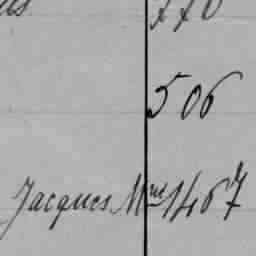 506
Jacques Mme 1467